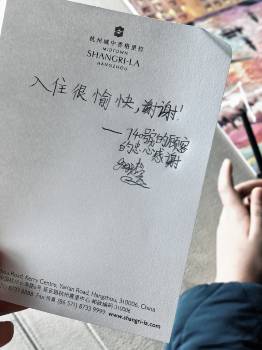 杭州城中香格里拉
MIDTOWN
SHANGRI-LA
HANGZHOU
入住很愉快,谢谢!
——740號的顾客
的忠心感谢
Road, Kerry Centre, Yan'an Road, Hangzhou, 310006, China
310006
8733 8088 Fax 传真 (86 571) 8733 9999 www.shangri-la.com